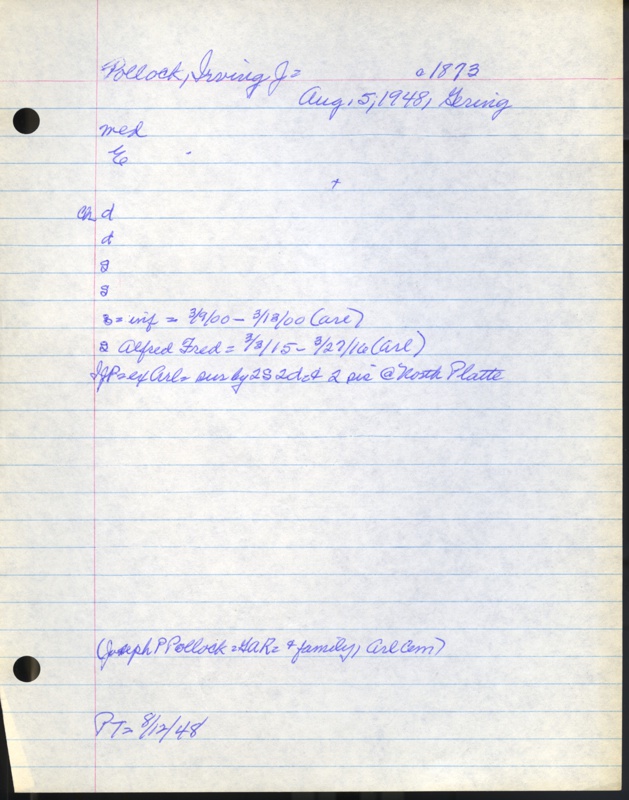 Pollock, Irving J = a 1873
Aug. 5, 1948, Gering
med
+
Ch d
d
s
s
s = inf = 3/9/00 – 3/13/00 (Arl)
s Alfred Fred = 3/3/15 – 3/27/16 (Arl)
IJP = ex Arl = sur by 2s 2d & 2 sis @ North Platte
(Joseph P Pollock = GAR = + family, Arl Cem)
PT = 8/12/48